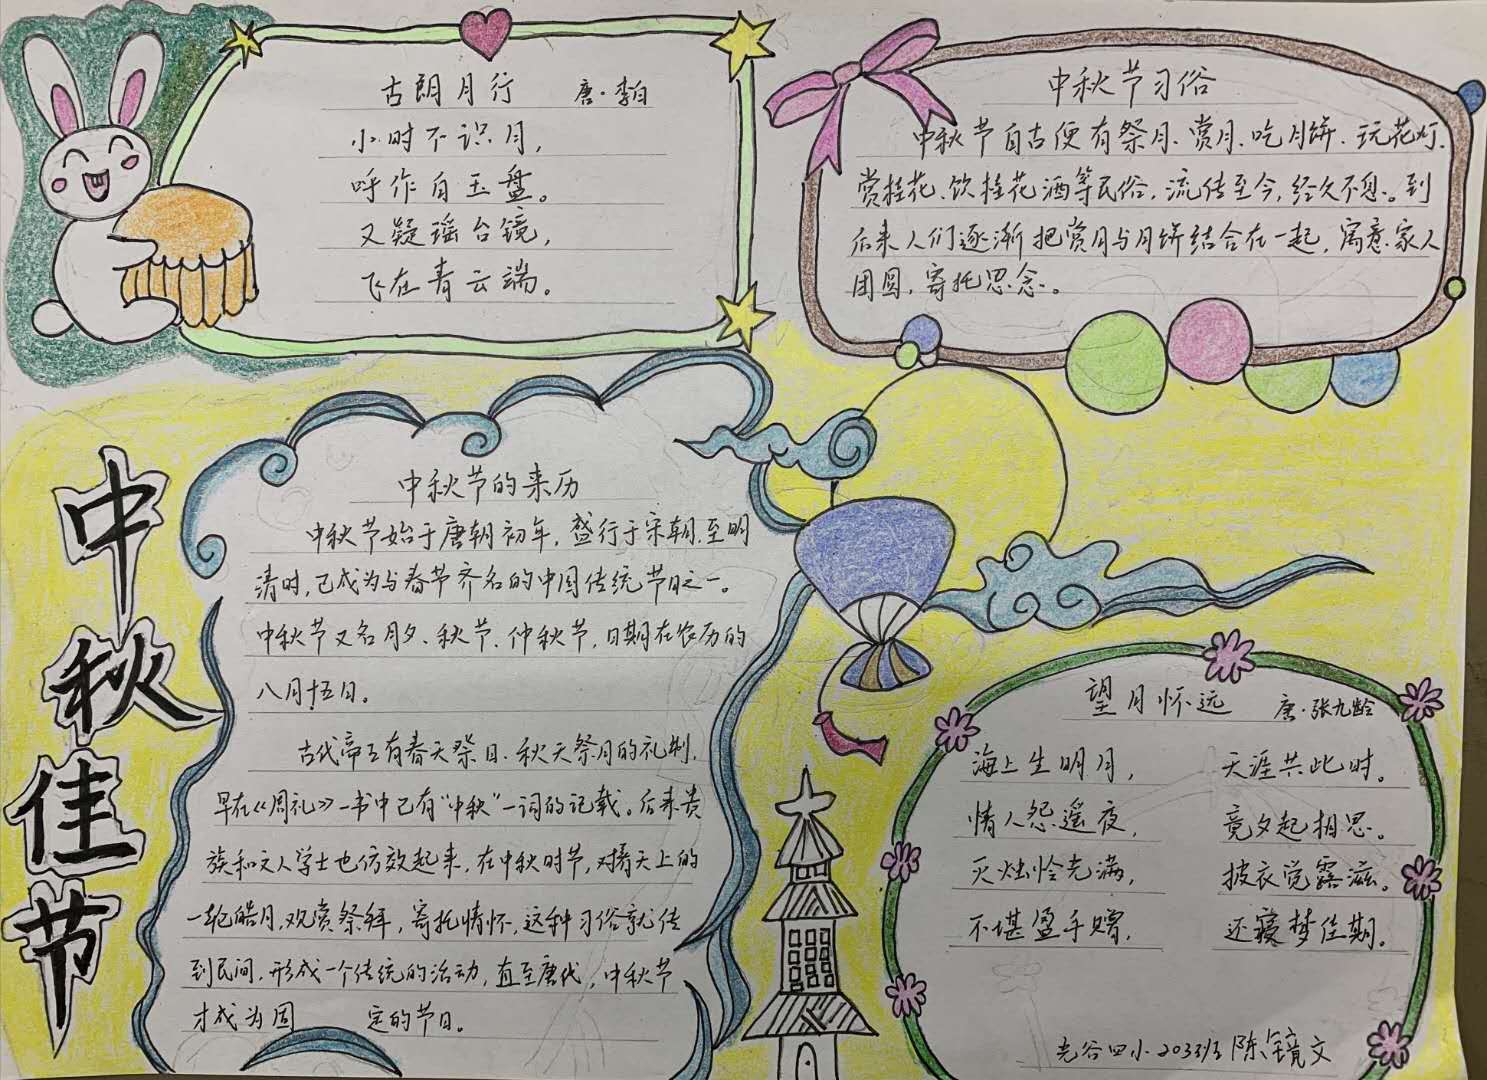 古朗月行 唐·李白
小时不识月，
呼作白玉盘。
又疑瑶台镜，
飞在青云端。
中秋节习俗
中秋节自古便有祭月、赏月、吃月饼、玩花灯、
赏桂花、饮桂花酒等民俗，流传至今，经久不息。到
后来人们逐渐把赏月与月饼结合在一起，寓意家人
团圆，寄托思念。
中秋佳节
中秋节的来历
中秋节始于唐朝初年，盛行于宋朝，至明
清时，已成为与春节齐名的中国传统节日之一。
中秋节又名月夕、秋节、仲秋节，日期在农历的
八月十五日。
古代帝王有春天祭日、秋天祭月的礼制，
早在《周礼》一书中已有“中秋”一词的记载。后来贵
族和文人学士也仿效起来，在中秋时节，对着天上的
一轮皓月，观赏祭拜，寄托情怀，这种习俗就传
到民间，形成一个传统的活动，直至唐代，中秋节
才成为固 定的节日。
望月怀远 唐·张九龄
海上生明月， 天涯共此时。
情人怨遥夜， 竟夕起相思。
灭烛怜光满， 披衣觉露滋。
不堪盈手赠， 还寝梦佳期。
光谷四小 2033班 陈镜文